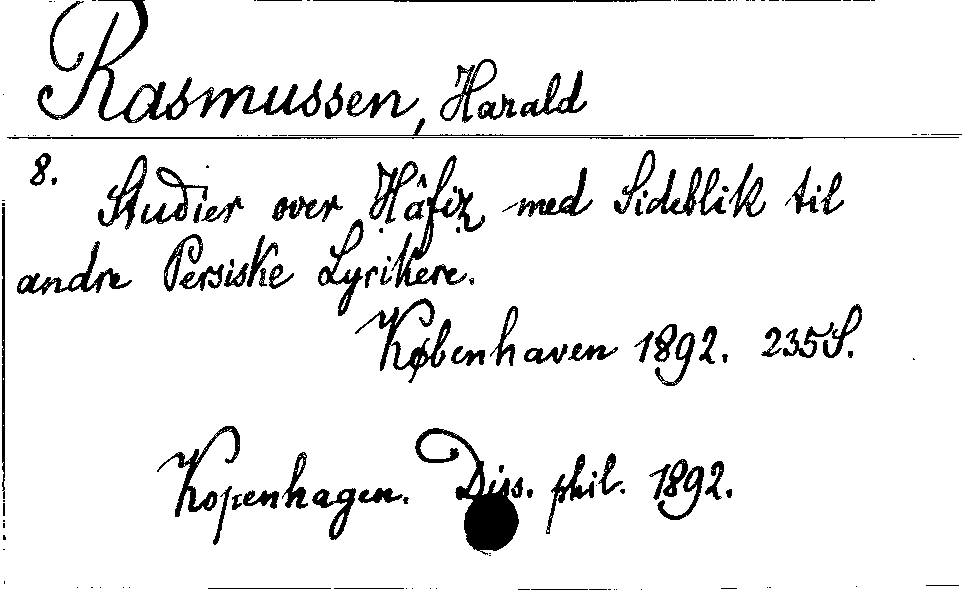 Rasmussen, Harald
8. Studier over Ḥâfiẓ med Sideblik til
andre Persiske Lyrikere.
København 1892. 235 S.
Kopenhagen. Diss. phil. 1892.